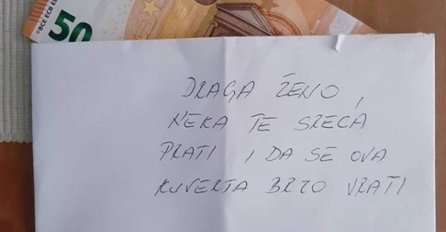 50
BCE ECB E
DRAGA ŽENO,
NEKA TE SREĆA
PRATI I DA SE OVA
KUVERTA BRZO VRATI